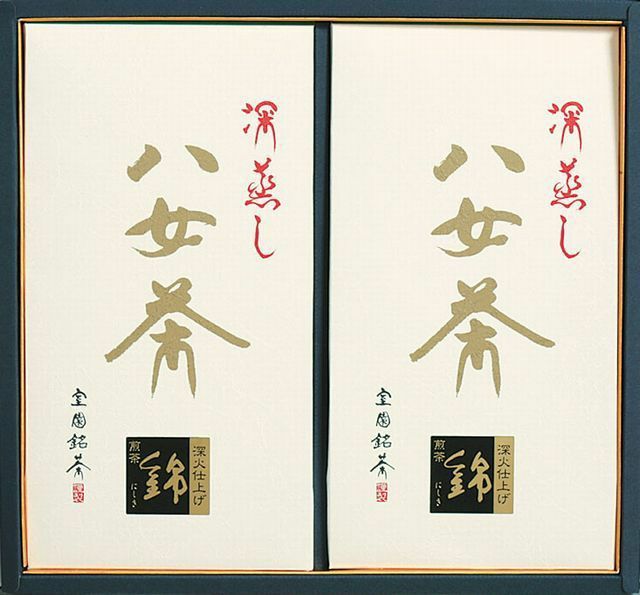 深蒸し
八女茶
室園銘茶
謹製
深火仕上げ
錦
にしき
煎茶
深蒸し
八女茶
室園銘茶
謹製
深火仕上げ
錦
にしき
煎茶